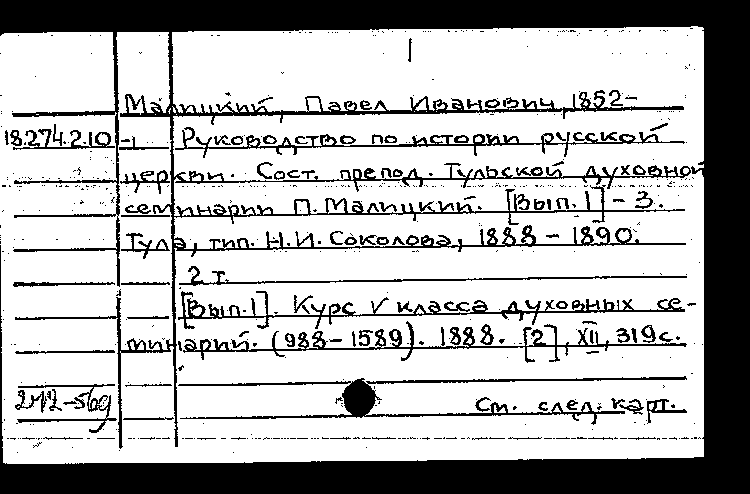 Малицкий, Павел Иванович, 1852–
18.274.2.10
Руководство по истории русской
церкви. Сост. препод. Тульской духовной
семинарии П. Малицкий. [Вып. 1] – 3.
Тула, тип. Н.И. Соколова, 1888 – 1890.
2 т.
[Вып. 1]. Курс V класса духовных се-
минарий. (988 – 1589). 1888. [2], XII, 319 с.
См. след. карт.